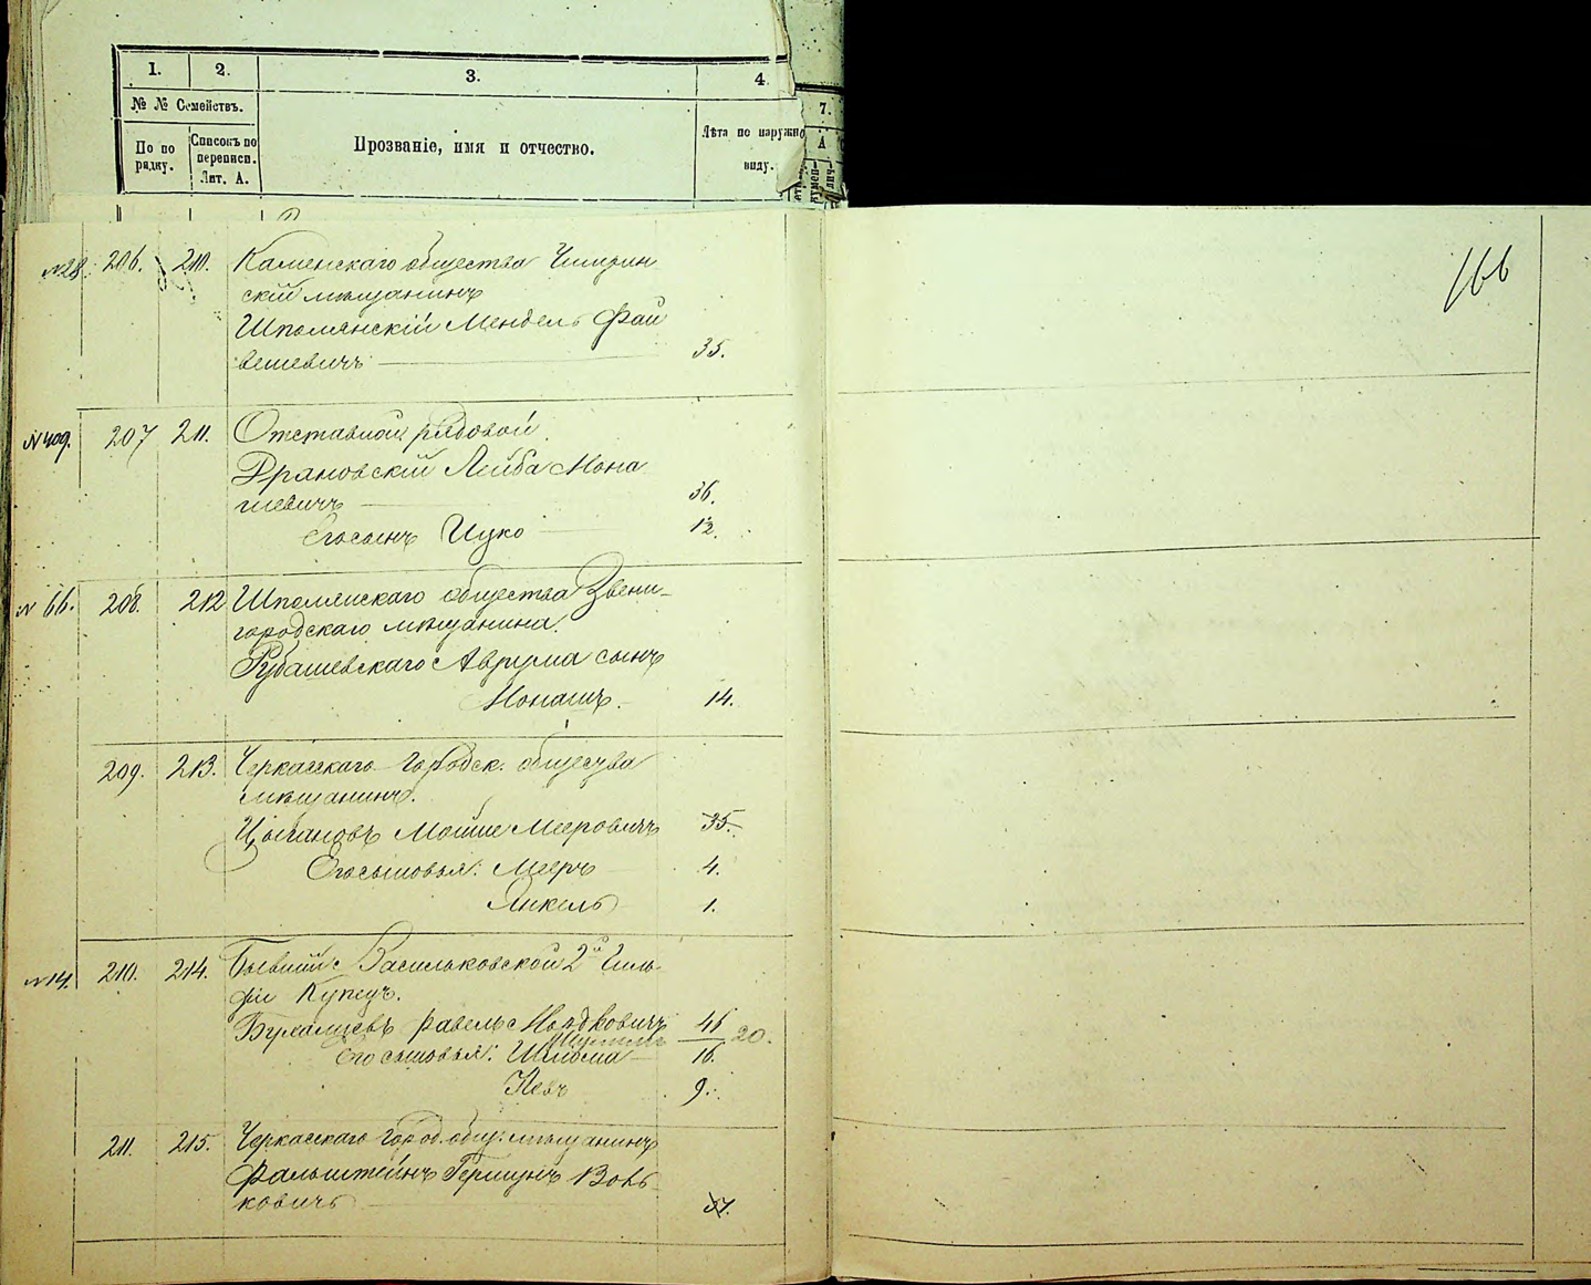 1. 2. 3. 4.
№ № Семействъ.
7.
По по рядку. Списокъ по переписи. Лит. А. Прозваніе, имя и отчество. Лѣта по наружно виду. А
166
№28. 206. 210. Каменскаго общества Чигирин
скій мѣщанинъ
Шполянскій Мендель Фай
вешевичъ 35.
№409. 207 211. Отставной рядовой
Дряновскій Лейба Мона
шевичъ 36.
Его сынъ Ицко 12.
№ 66. 208. 212 Шполянскаго общества Звени-
городскаго мѣщанина
Рубашевскаго Аврума сынъ
Монашъ. 14.
209. 213. Черкасскаго городск. общества
мѣщанинъ.
Цыгановъ Мойше Мееровичъ 35.
Его сыновья: Мееръ 4.
Янкель 1.
№14. 210. 214. Бывшій Васильковской 2й Гиль-
діи Купецъ.
Мордковичъ 46 20.
Его сыновья: Шлома 16.
9.
211. 215. Черкасскаго город. общ. мѣщанинъ
Фальштейнъ Гершунъ Воль-
ковичъ 37.